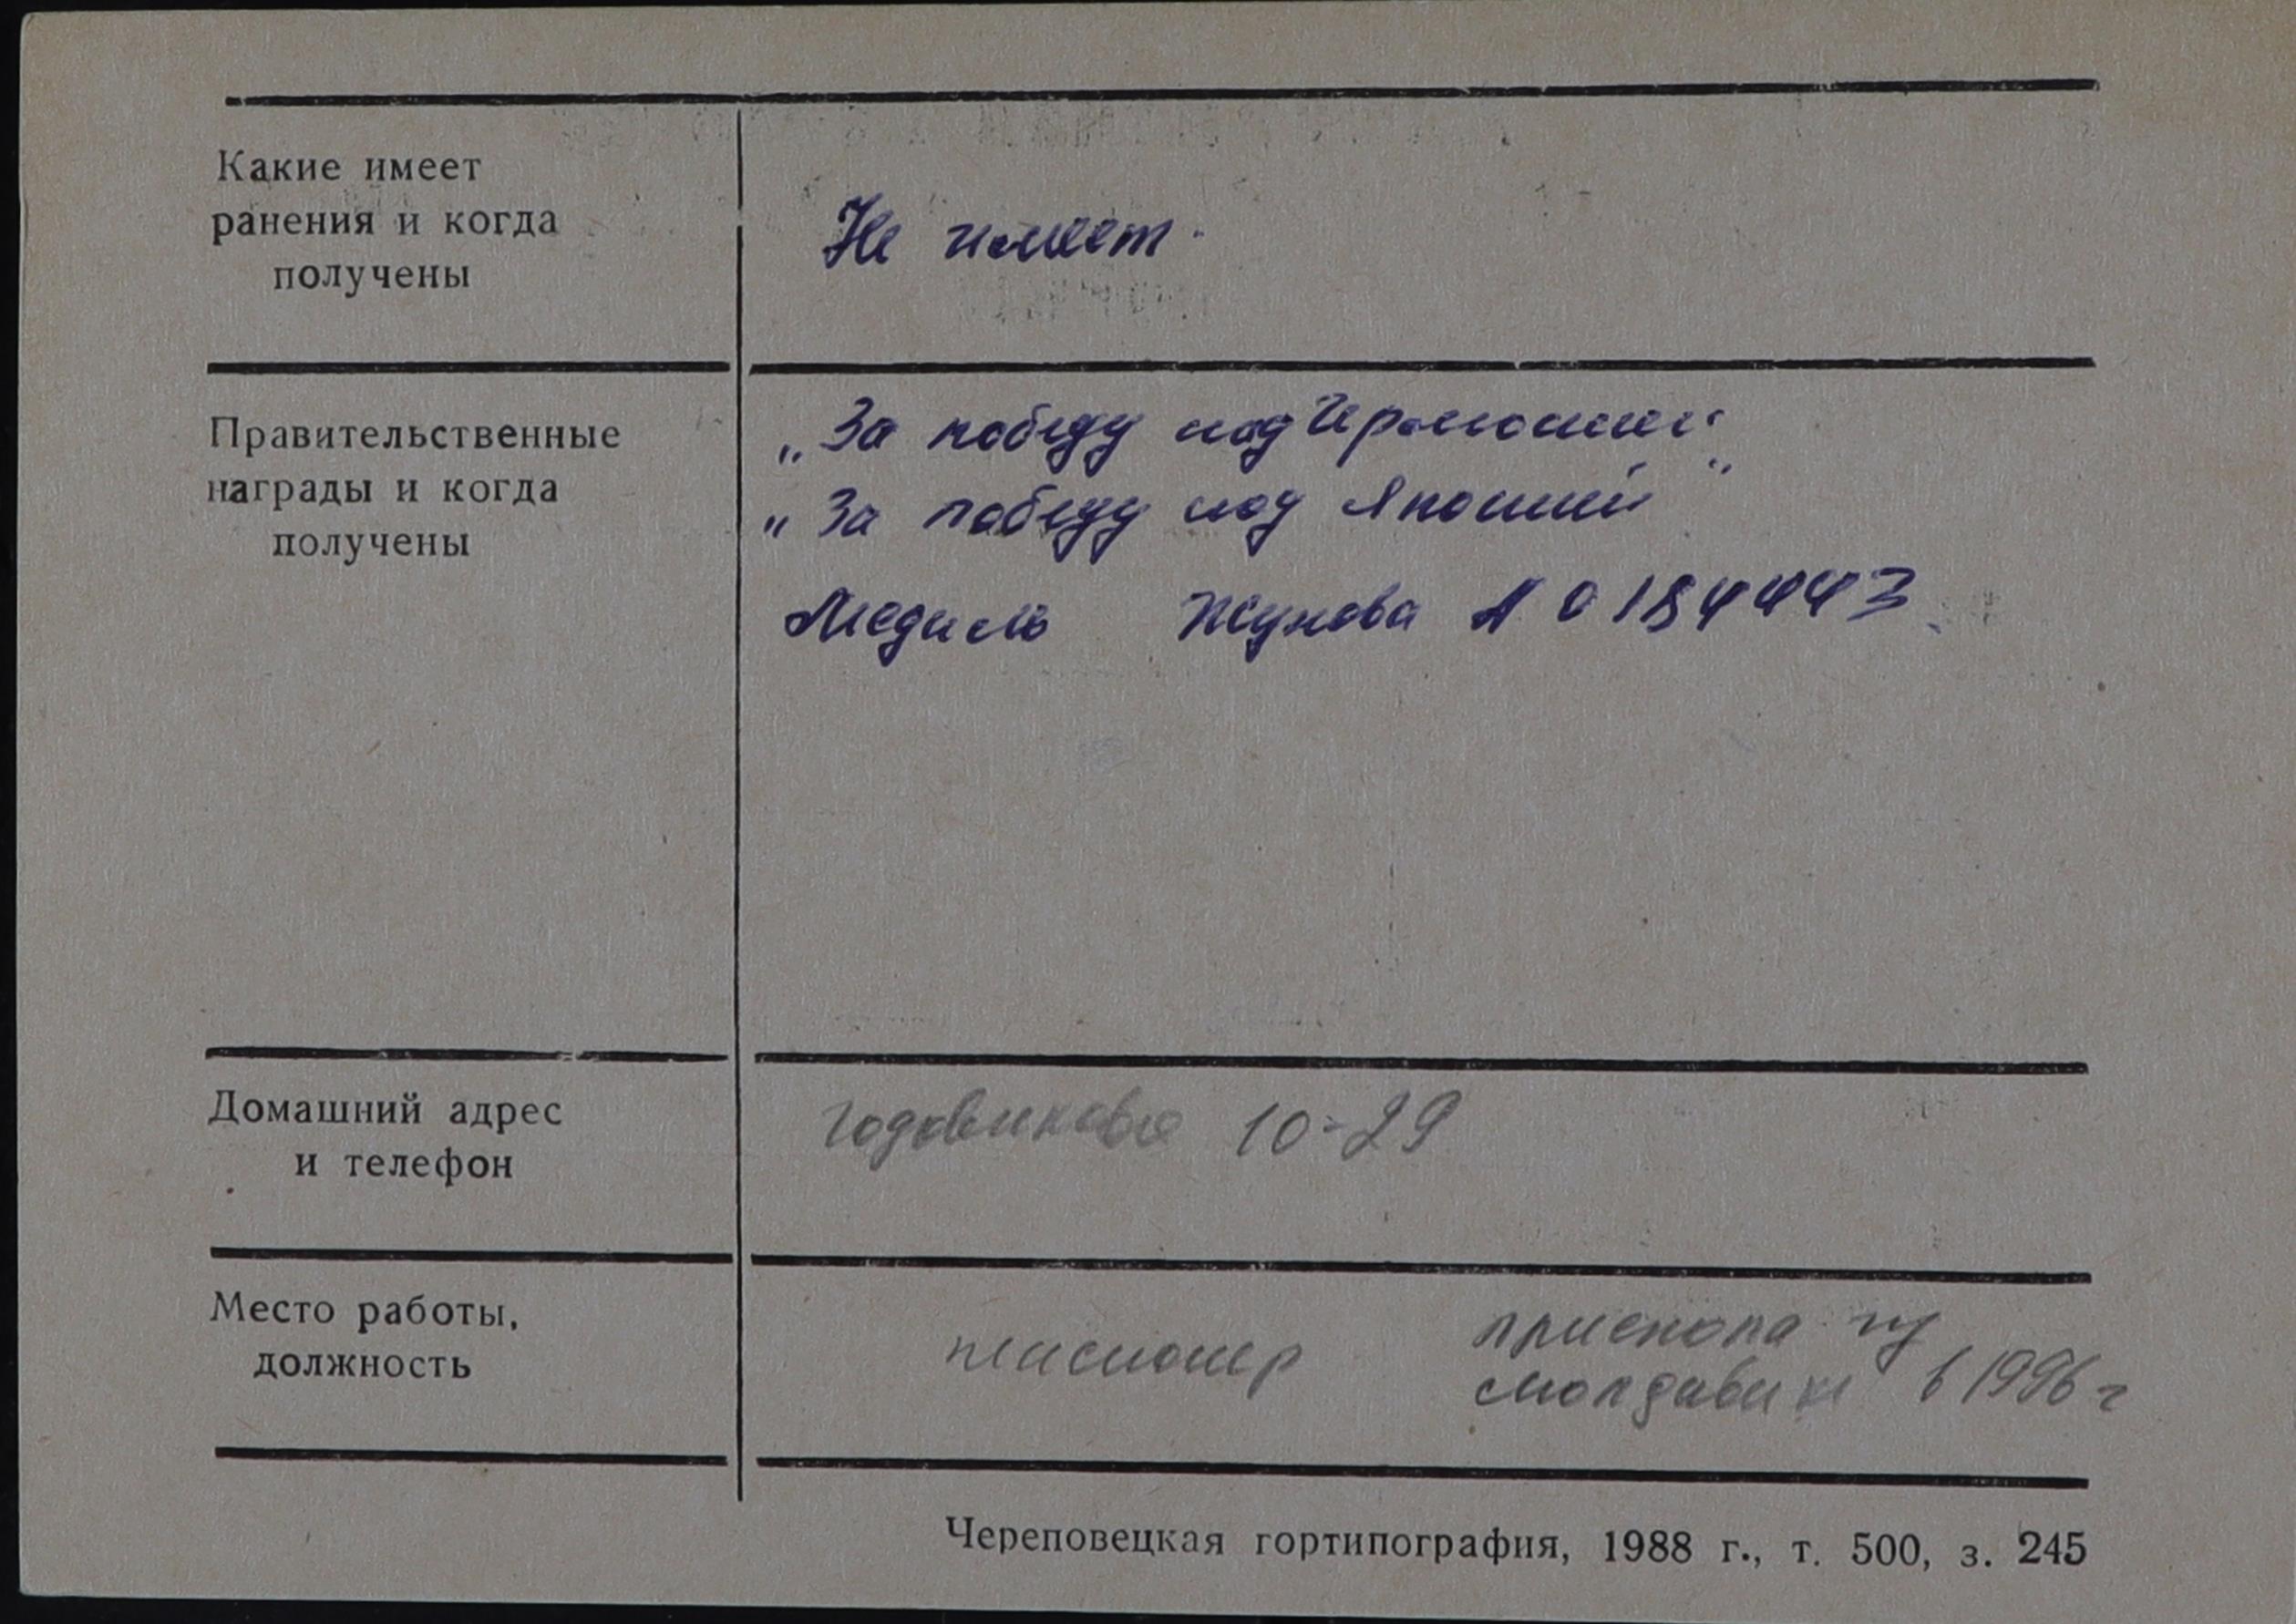 Какие имеет
ранения и когда
получены
Не имеет.
Правительственные
награды и когда
получены
„За победу над Германией"
„За победу над Японией"
Медаль Жукова А 0184443.
Домашний адрес
и телефон
Годовикова 10-29
Место работы,
должность
пенсионер
приехала из
Молдавии в 1996 г
Череповецкая гортипография, 1988 г., т. 500, з. 245